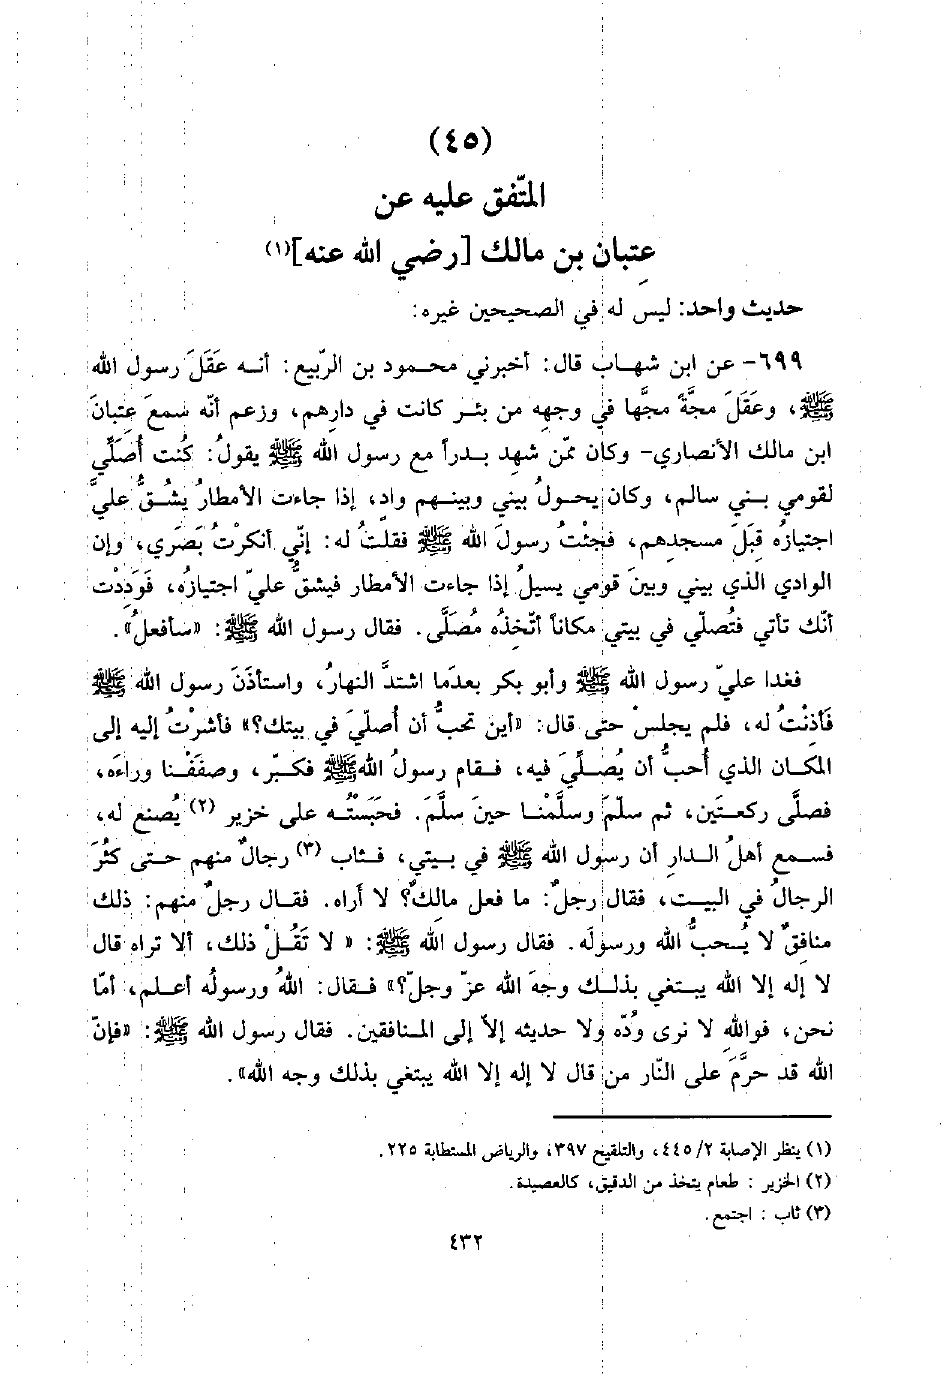 (٤٥)
المتّفق عليه عن
عِتبان بن مالك [رضي الله عنه](١)
حديث واحد: ليس له في الصحيحين غيره:
٦٩٩- عن ابن شهاب قال: أخبرني محمود بن الرّبيع: أنه عَقَلَ رسول الله
ﷺ، وعَقَلَ مجةً مجَّها في وجهِه من بئر كانت في دارِهم، وزعم أنّه سمعَ عِتبانَ
ابن مالك الأنصاري- وكان ممّن شهد بدراً مع رسول الله ﷺ يقولُ: كُنت أُصلِّي
لقومي بني سالم، وكان يحولُ بيني وبينهم وادٍ، إذا جاءت الأمطارُ يشُقُّ عليَّ
اجتيازُه قِبَلَ مسجدهِم، فجئْتُ رسولَ الله ﷺ فقلتُ له: إنّي أنكرْتُ بَصَري، وإن
الوادي الذي بيني وبينَ قومي يسيلُ إذا جاءت الأمطار فيشقُّ عليّ اجتيازُه، فَوَدِدْت
أنّك تأتي فتُصلّي في بيتي مكاناً أتّخذُه مُصَلَّى. فقال رسول الله ﷺ: «سأفعلُ».
فغدا عليّ رسول الله ﷺ وأبو بكر بعدَما اشتدَّ النهارُ، واستأذَنَ رسول الله ﷺ
فَأذِنْتُ له، فلم يجلسْ حتى قال: «أين تحبُّ أن أُصلّيَ في بيتك؟» فأشرْتُ إليه إلى
المكان الذي أُحبُّ أن يُصلِّيَ فيه، فقام رسولُ اللهﷺ فكبّر، وصففْنا وراءَه،
فصلَّى ركعتَين، ثم سلّمَ وسلَّمْنا حينَ سلَّمَ. فحَبَسْتُه على خزير (٢) يُصنع له،
فسمع أهلُ الدارِ أن رسول الله ﷺ في بيتي، فثاب (٣) رجالٌ منهم حتى كثُرَ
الرجالُ في البيت، فقال رجلٌ: ما فعل مالكٌ؟ لا أراه. فقال رجلٌ منهم: ذلك
منافقٌ لا يُحبُّ الله ورسولَه. فقال رسول الله ﷺ: « لا تَقُلْ ذلك، ألا تراه قال
لا إله إلا الله يبتغي بذلك وجهَ الله عزّ وجلّ؟» فقال: اللهُ ورسولُه أعلم، أمّا
نحن، فواللهِ لا نرى وُدّه ولا حديثه إلاّ إلى المنافقين. فقال رسول الله ﷺ: «فإنّ
الله قد حرَّمَ على النّار من قال لا إله إلا الله يبتغي بذلك وجه الله».
(١) ينظر الإصابة ٢/ ٤٤٥، والتلقيح ٣٩٧، والرياض المستطابة ٢٢٥.
(٢) الخزير : طعام يتخذ من الدقيق، كالعصيدة.
(٣) ثاب : اجتمع.
٤٣٢